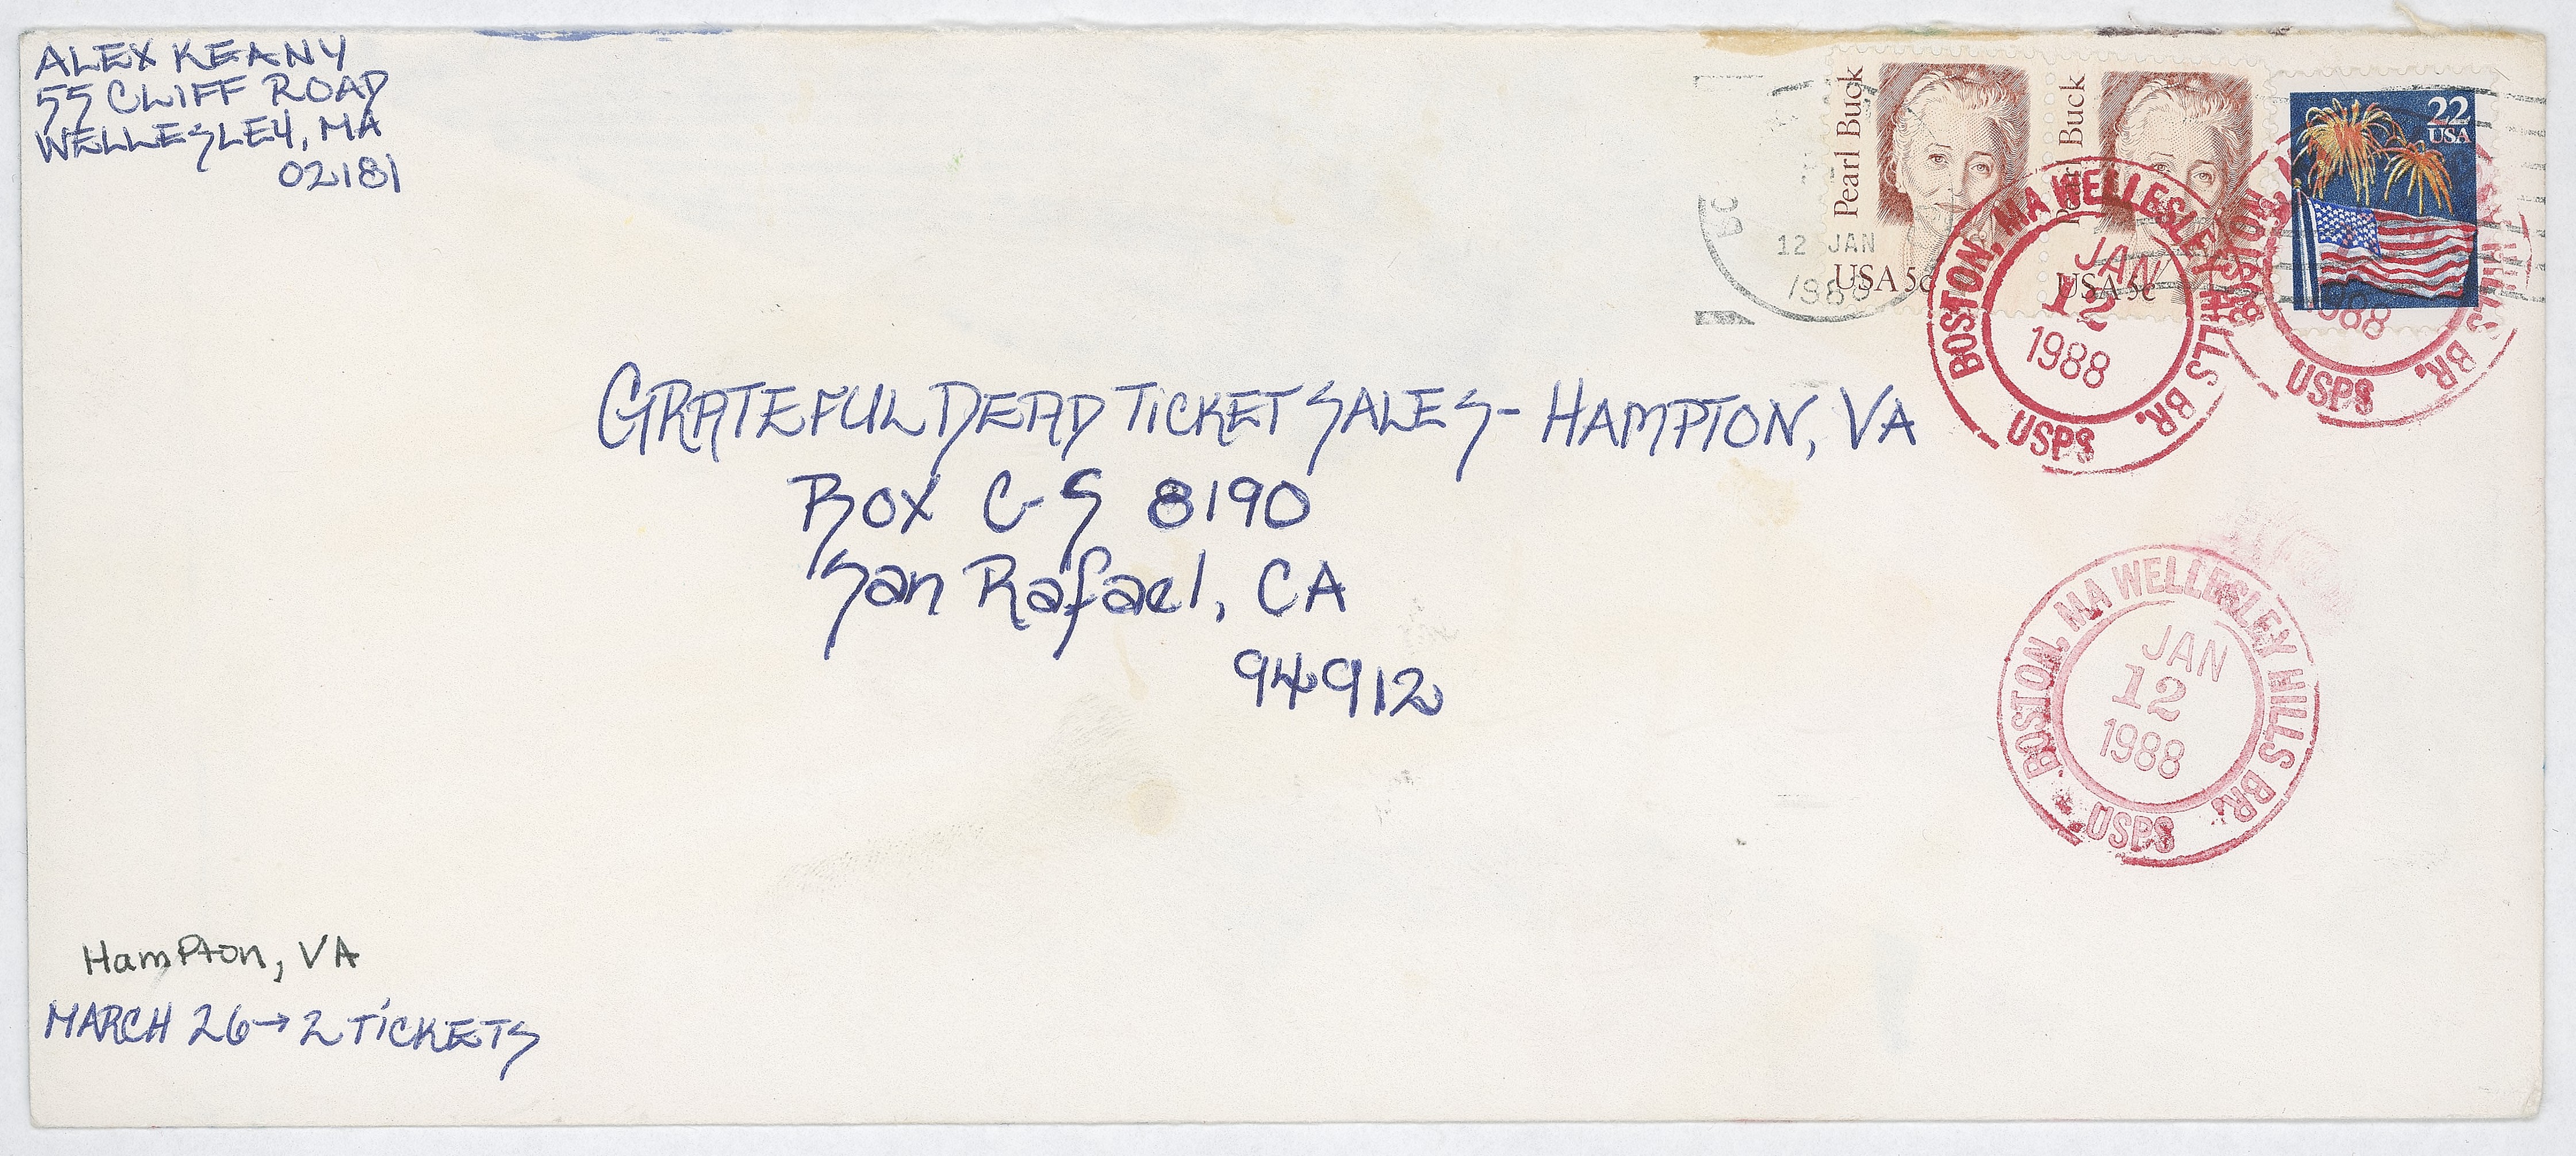 ALEX KEANY
55 CLIFF ROAD
WELLESLEY, MA
02181
Pearl Buck
USA 5c
Pearl Buck
USA 5c
22
USA
12 JAN
1988
BOSTON, MA WELLESLEY HILLS BR.
JAN
12
1988
USPS
BOSTON, MA WELLESLEY HILLS BR.
1988
USPS
GRATEFUL DEAD TICKET SALES- HAMPTON, VA
Box C-S 8190
San Rafael, CA
94912
BOSTON, MA WELLESLEY HILLS BR.
JAN
12
1988
USPS
Hampton, VA
MARCH 26→2 TICKETS